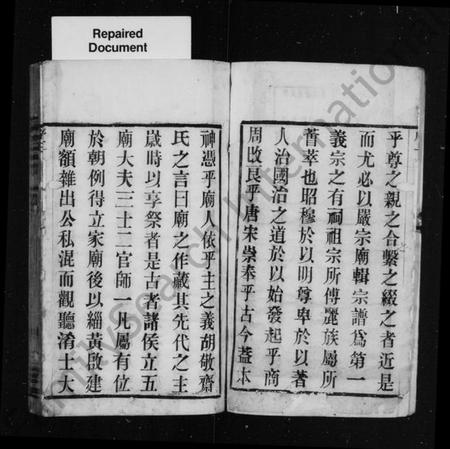 Repaired
Document
乎尊之親之合繫之綴之者近是
而尤必以嚴宗廟輯宗譜爲第一
義宗之有祠祖宗所傅麗族屬所
薈萃也昭穆於以明尊卑於以著
人治國治之道於以始發起乎商
周改良乎唐宋崇奉乎古今蓋本
神憑乎廟人依乎主之義胡敬齋
氏之言曰廟之作藏其先代之主
歲時以享祭者是古者諸侯立五
廟大夫三士二官師一凡屬有位
於朝例得立家廟後以緇黃啟建
廟額雜出公私混而觀聽淆士大